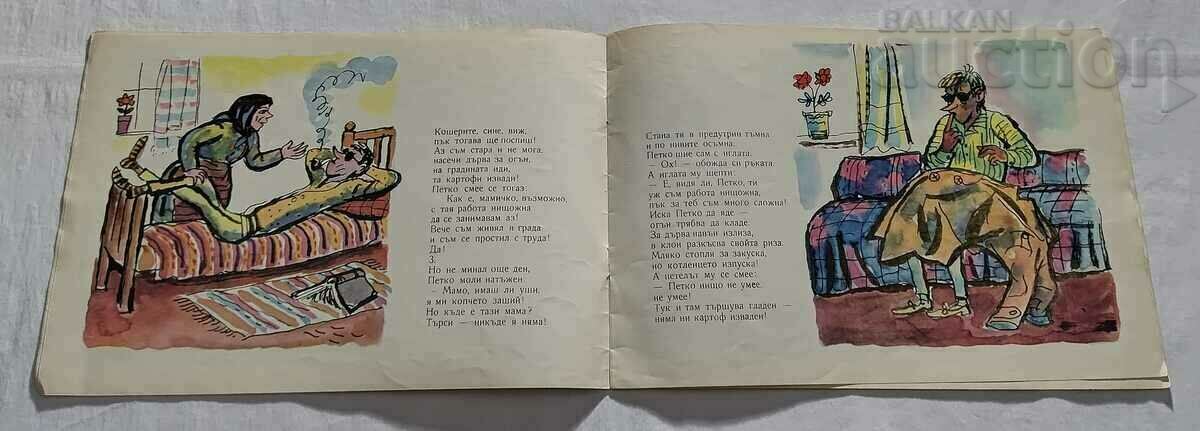 BALKAN
auction
Кошерите, сине, виж,
пък тогава ще поспиш!
Аз съм стара и не мога,
насечи дърва за огън,
на градината иди,
та картофи извади!
Петко смее се тогаз:
— Как е, мамичко, възможно,
с тая работа нищожна
да се занимавам аз!
Вече съм живял в града
и съм се простил с труда!
Да!
3.
Но не минал още ден,
Петко моли натъжен:
— Мамо, имаш ли уши,
я ми копчето заший!
Но къде е тази мама?
Търси — никъде я няма!
Стана тя в предутрин тъмна
и по нивите осъмна.
Петко шие сам с иглата.
— Ох! — обожда си ръката.
А иглата му шепти:
— Е, видя ли, Петко, ти
уж съм работа нищожна,
пък за теб съм много сложна!
Иска Петко да яде —
огън трябва да кладе.
За дърва навън излиза,
в клон разкъсва свойта риза.
Мляко стопли за закуска,
но котленцето изпуска!
А петелът му се смее:
— Петко нищо не умее.
не умее!
Тук и там тършува гладен —
няма ни картоф изваден!